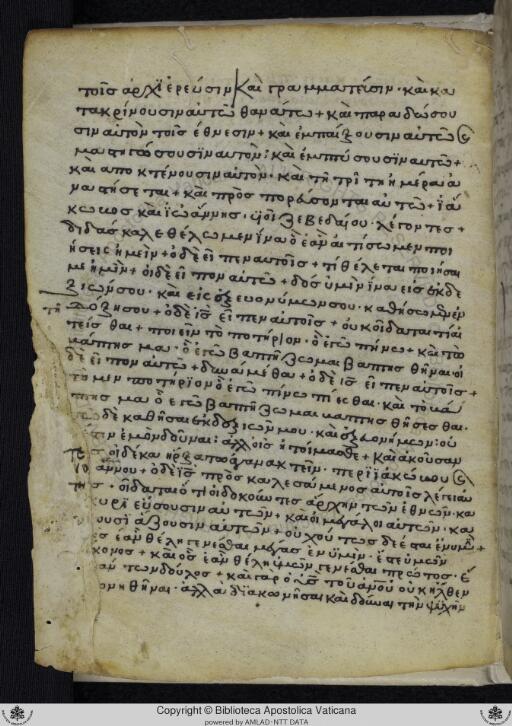 τοῖς ἀρχϊερεύσιν καὶ γραμματεύσιν· καὶ κα
τακρίνουσιν αὐτῶ θανάτω + καὶ παραδώσου
σιν αὐτὸν τοῖς ἔθνεσιν + καὶ ἐμπαίξουσιν αὐτῶ
μαστηγώσουσϊν αὐτον: καὶ ἐμπτύσουσϊν αὐτῶ +
καὶ αποκτένουσιν αυτὸν· καὶ τῆ τρίτη ἡμέρα ἀ
ναστήσεται + καὶ πρὸσπορέυονται αὐτῶ + ϊά
κωωος καὶ ϊωάννης· υἱοι ζεβεδαίου· λέγοντες +
διδάσκαλε θέλωμεν ἵνα ὃ ἐὰν αἰτίσωμεν ποι
ήσεις ἡμεῖν + ὁ δὲ εἶπεν αυτοῖς + τί θέλεται ποιῆσαι
με ἡμῖν + οἱ δὲ εἶπον αυτῶ + δὸς ὑμῖν ἵνα εἷς ἐκ δε
ξιῶν σου· καὶ εἷς ἐξ ευονύμων σου· καθήσωμεν ἐν
τῆ δόξη σου + ὁ δὲ ἰς εἶπεν αυτοῖς + οὐκ οἴδαται τί αἰ
τεῖσθαι + ποιεῖν τὸ ποτήριον· ὃ ἐγὼ πήνω + καὶ τὸ
βάπτησμα· ὃ ἐγὼ βαπτήζωμαι βαπτησθῆναι· οἱ
δὲ εἶπον αυτῶ + δυνάμεθα + ὁ δὲ ἰς εἶπεν αυτοῖς +
τὸ μὲν ποτηρϊον ὃ ἐγὼ πίνω πίεσθαι· καὶ τὸ βά
πτησμα ὃ εγὼ βαπτήζωμαι βαπτησθήσεσθαι·
τὸ δὲ καθῆσαι ἐκ δεξιῶν μου· καὶ ἐξ εωνήμων: οὐ
ἔστιν ἐμὸν δοῦναι: ἀλλ οἷς ἡτοίμασθε + καὶ ἀκούσαν
τες οἱ δέκα ἤρξατω ἀγανακτεῖν· περῒ ϊακώωου
ϊωάννου + ὁ δὲ ἰς προσκαλεσάμενος αὐτοῖς λέγει αὐ
τοῖς + οἴδατ ὅτι οἱ δοκοῦντες ἄρχην τῶν ἐθνῶν· κα
κυριεύουσιν αυτῶν + καὶ οἱ μεγάλοι αὐτῶν· κα
ουσιάζουσιν αυτῶν + οὐχ οὕτως δὲ ἔσται ἐν υμῖν +
ὃς ἐὰν θέλη γενέσθαι μέγας ἐν ὑμῖν· ἔσται ὑμῶν
κονος + καὶ ὃς ἐὰν θέλη ὑμῶν γενέσθαι πρῶτος· ἔ
πάντων δοῦλος + καὶ γὰρ ὁ υἱς τοῦ ἀνου οὐκ ἦλθεν
ονηθῆναι· ἀλλα δϊακωνῆσαι καὶ δοῦναι τὴν ψυχὴν
Copyright © Biblioteca Apostolica Vaticana
powered by AMLAD-NTT DATA